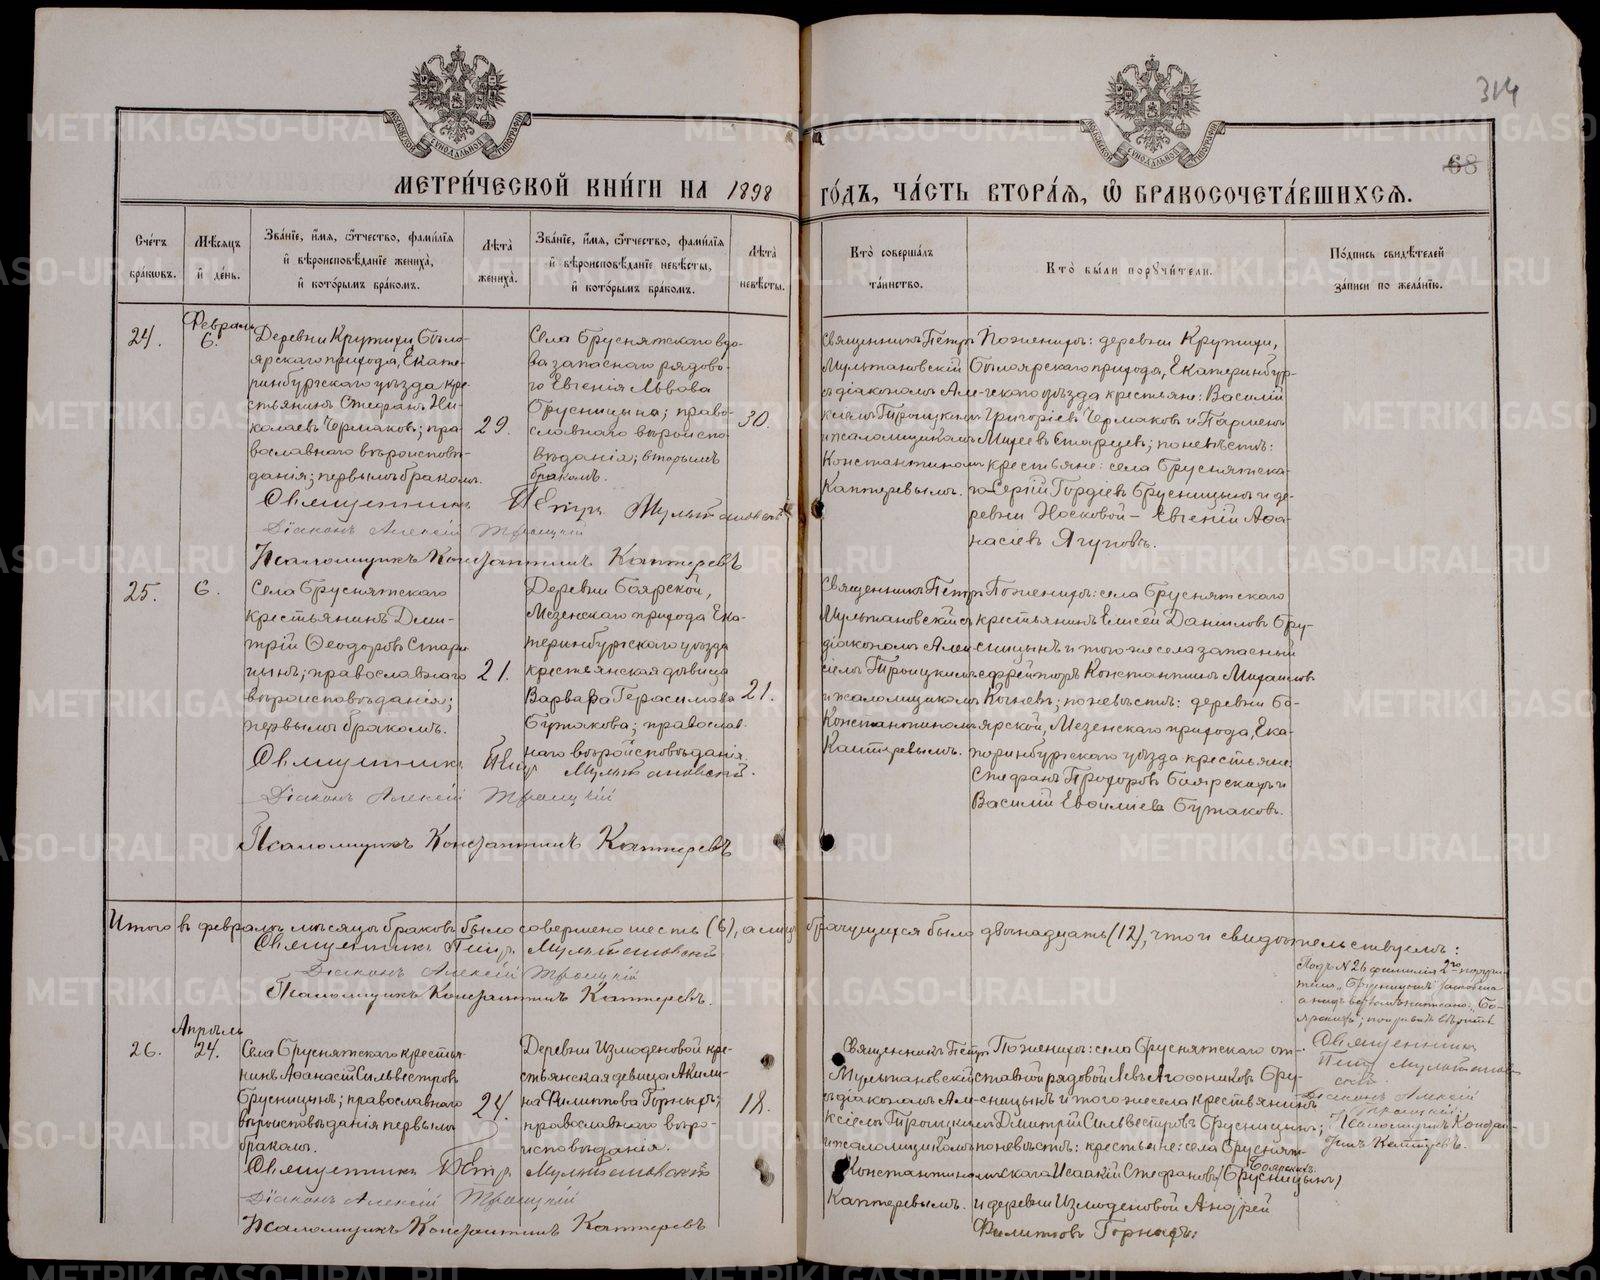 314
68
МЕТРИ́ЧЕСКОЙ КНИ́ГИ НА 1898 ГО́ДЪ, ЧА́СТЬ ВТОРА́Я, Ѡ БРАКОСОЧЕТА́ВШИХСЯ.
Сче́тъ бра́ковъ.
Мѣ́сяцъ и҆ де́нь.
Зва́нїе, и҆́мя, ѻ҆́тчество, фами́лїя и҆ вѣроисповѣ́данїе жениха̀, и҆ кото́рымъ бра́комъ.
Лѣ́та жениха̀.
Зва́нїе, и҆́мя, ѻ҆́тчество, фами́лїя и҆ вѣроисповѣ́данїе невѣ́сты, и҆ кото́рымъ бра́комъ.
Лѣ́та невѣ́сты.
Кто̀ соверша́лъ та́инство.
Кто̀ бы́ли поручи́тели.
По́дпись свидѣ́телей за́писи по жела́нїю.
24.
Февраль
6.
Деревни Крутихи Бѣло-
ярскаго прихода, Екате-
ринбургскаго уѣзда кре-
стьянинъ Стефанъ Ни-
колаевъ Чермаковъ; пра-
вославнаго вѣроисповѣ-
данія; первымъ бракомъ.
29.
Села Бруснятскаго вдо-
ва запаснаго рядово-
го Евгенія Львова
Брусницына; право-
славнаго вѣроиспо-
вѣданія; вторымъ
бракомъ.
30.
Священникъ Петръ
Мультановскій
съ діакономъ Але-
ксѣемъ Троицкимъ
и псаломщикомъ
Константиномъ
Каптеревымъ.
По женихѣ: деревни Крутихи,
Бѣлоярскаго прихода, Екатеринбург-
скаго уѣзда крестьяне: Василій
Григоріевъ Чермаковъ и Парменъ
Мирѣевъ Старцевъ; по невѣстѣ:
крестьяне: села Бруснятска-
го Сергій Гордіевъ Брусницынъ и де-
ревни Носковой — Евгеній Аѳа-
насіевъ Ягуповъ.
Священникъ Петръ Мультановскій
Діаконъ Алексій Троицкій
Псаломщикъ Константинъ Каптеревъ
25.
6.
Села Бруснятскаго
крестьянинъ Дими-
трій Ѳеодоровъ Стари-
цынъ; православнаго
вѣроисповѣданія;
первымъ бракомъ.
21.
Деревни Боярской,
Мезенскаго прихода Ека-
теринбургскаго уѣзда
крестьянская дѣвица
Варвара Герасимова
Бутакова; православ-
наго вѣроисповѣданія
21.
Священникъ Петръ
Мультановскій съ
діакономъ Алек-
сіемъ Троицкимъ
и псаломщикомъ
Константиномъ
Каптеревымъ.
По женихѣ: села Бруснятскаго
крестьянинъ Елисей Даниловъ Бру-
сницынъ и того же села запасный
ефрейторъ Константинъ Михаиловъ
Коневъ; по невѣстѣ: деревни Бо-
ярской, Мезенскаго прихода, Ека-
теринбургскаго уѣзда крестьяне:
Стефанъ Прохоровъ Боярскихъ и
Василій Евѳиміевъ Бутаковъ.
Священникъ Петръ Мультановскій.
Діаконъ Алексій Троицкій
Псаломщикъ Константинъ Каптеревъ
Итого въ февралѣ мѣсяцѣ браковъ было совершено шесть (6), а лицъ брачущихся было двѣнадцать (12), что и свидѣтельствуемъ:
Священникъ Петръ Мультановскій
Діаконъ Алексій Троицкій
Псаломщикъ Константинъ Каптеревъ.
26.
Апрѣль
24.
Села Бруснятскаго крестья-
нинъ Аѳанасій Сильвестровъ
Брусницынъ; православнаго
вѣроисповѣданія первымъ
бракомъ.
24.
Деревни Измоденовой кре-
стьянская дѣвица Акили-
на Филиппова Горныхъ;
православнаго вѣро-
исповѣданія.
18.
Священникъ Петръ
Мультановскій
съ діакономъ Але-
ксіемъ Троицкимъ
и псаломщикомъ
Константиномъ
Каптеревымъ.
По женихѣ: села Бруснятскаго от-
ставной рядовой Левъ Агаѳониковъ Бру-
сницынъ и того же села крестьянинъ
Димитрій Сильвестровъ Брусницынъ;
по невѣстѣ: крестьяне: села Бруснят-
скаго Исаакій Стефановъ (Брусницынъ)
Боярскихъ
и деревни Измоденовой Андрей
Филипповъ Горныхъ.
Подъ №26 фамилія 2го поручи-
теля „Брусницынъ“ зачеркнута
а надъ верхомъ написано: „Бо-
ярскихъ“; поправкѣ вѣрить
Священникъ
Петръ Мультанов-
скій.
Діаконъ Алексій
Троицкій
Псаломщикъ Констан-
тинъ Каптеревъ.
Священникъ Петръ Мультановскій
Діаконъ Алексій Троицкій
Псаломщикъ Константинъ Каптеревъ
METRIKI.GASO-URAL.RU